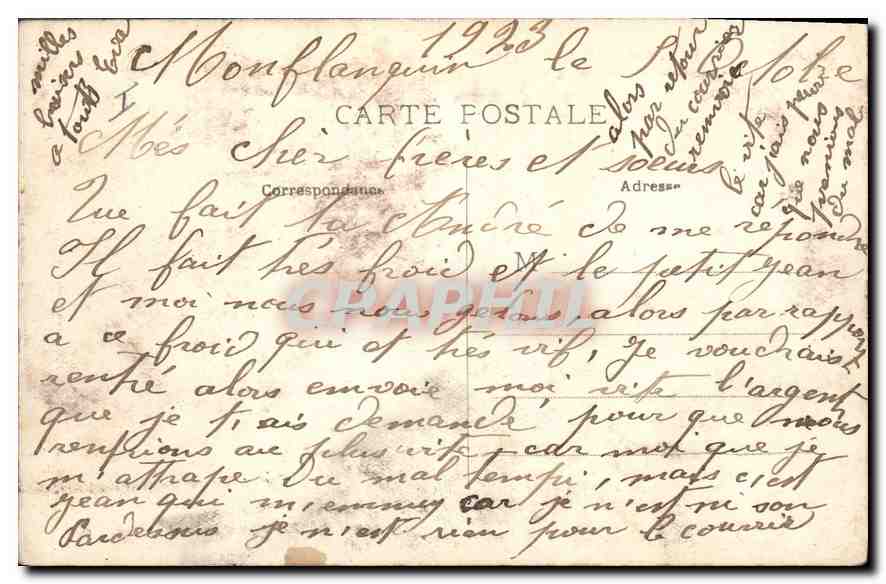 1923
Monflanquin le 5 Octobre
CARTE POSTALE
Més chèr frères et soeurs
Correspondance
Adresse
Que fait ta André de me répondre
Il fait très froid et le petit jean
M
et moi nous nous gelons, alors par rapport
a ce froid qui et très vif, Je vouchais
rentré alors envoie moi vite l'argent
que je t'ais demandé pour que nous
rentrions au plus vite car moi que je
m'attrape Du mal tempi, mais c'est
jean qui m'emmuy car je n'est ni son
Pardessus je n'est rien pour le courrir
alors
par retour
du courrier
renvoie
le vite
car j'ais peur
que nous
prenions
du mal
milles
baisers
a touts
Eva
CPAPHIL